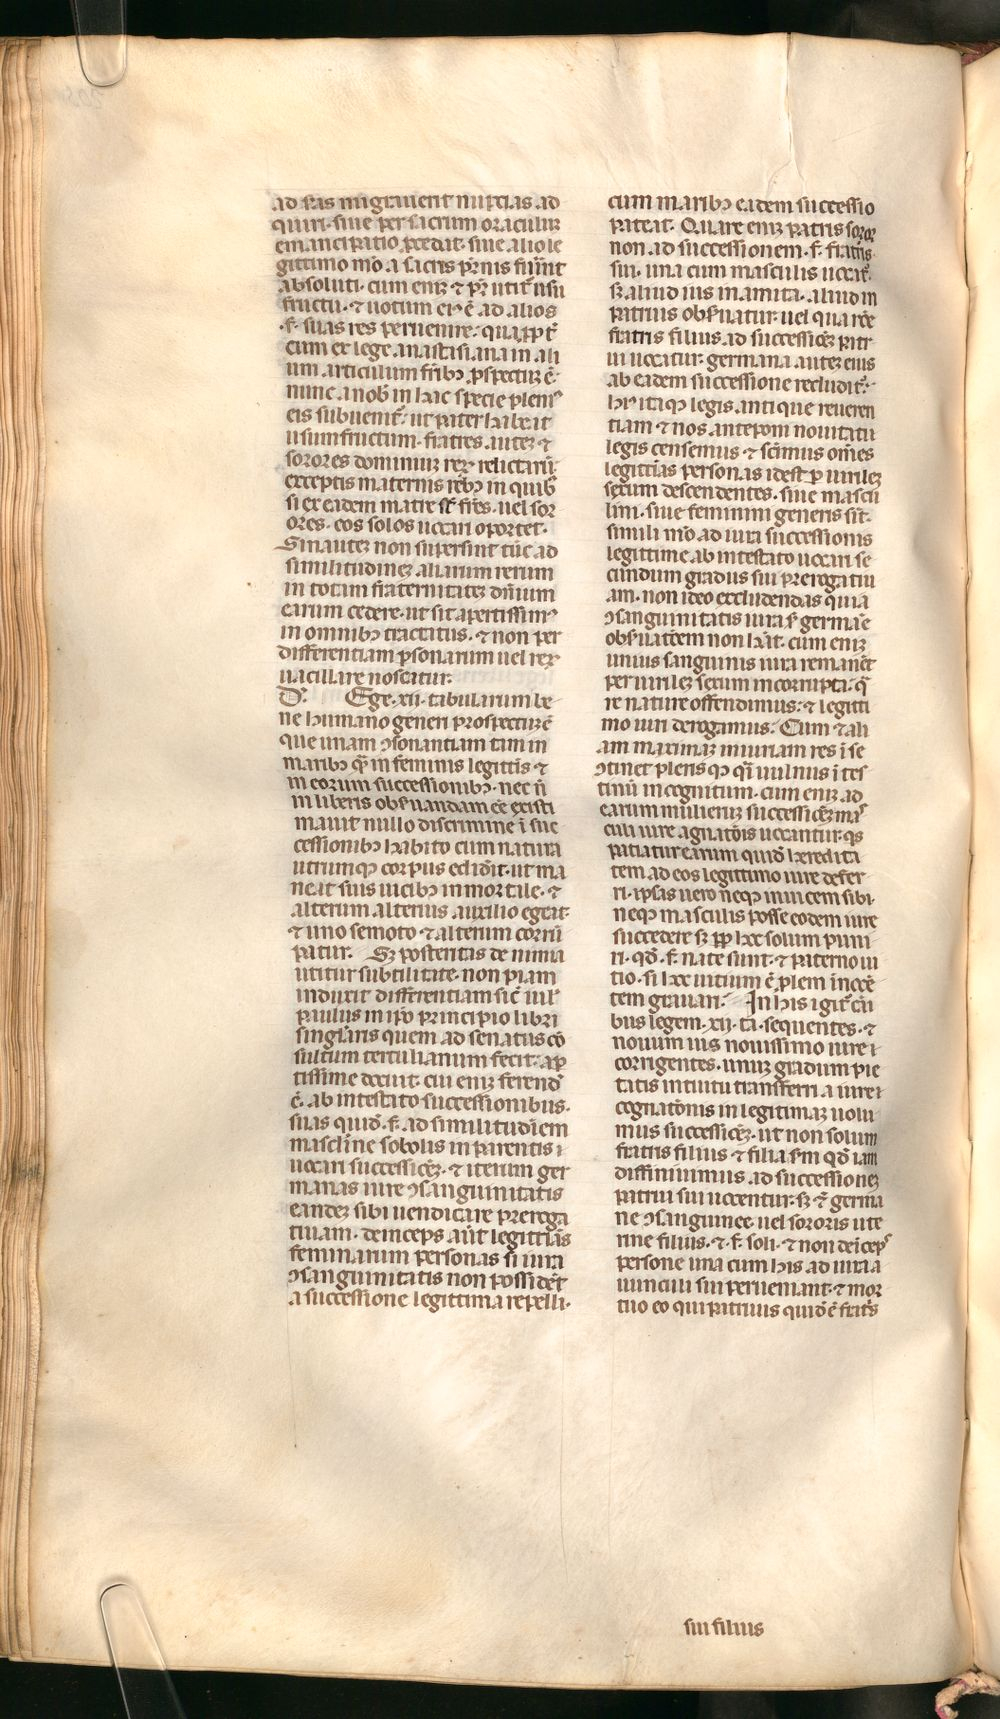 ad ṗ͂as migrauerit nuptias ad
quiri· siue per sacrum oraculuꝫ
emancipatio ꝓcedat· siue alio le
gittimo mō a sacris pr̄nis fiūnt
absoluti· cum eniꝫ ⁊ pr̄ utit̄ usu
fructu· ⁊ uotum ei ē ad alios
·s̄· suas res peruenire·
cum ex lege anastasiana in ali
um articulum frībꝫ ꝓspectuꝫ ē·
nunc a nob̄ in hac specie pleni
eis subuenit̄· ut pater habeat
usumfructum· fratres auteꝫ ⁊
sorores dominiuꝫ reꝝ relictaꝝ·
exceptis maternis rebꝫ in quib̄
si ex eadem matre st̄ fr̄es· uel sor
ores· eos solos uocari oportet·
Sinauteꝫ non supersint tūc ad
similitudineꝫ aliarum rerum
in totum fr̄aternitateꝫ dn̄ium
earum cedere· ut sit apertissim
in omnibꝫ tractatus· ⁊ non per
differentiam ꝑsonarum uel reꝝ
uacillare noscatur·
D· Ege· xii· tabularum be
ne humano generi prospectuꝫ ē
que unam ꝯsonantiam tam in
maribꝫ q̄m in feminis legittīs ⁊
in eorum successionibꝫ· nec n̄
in liberis obs̄uandam eē existi
mauit nullo discrimine ī suc
cessionibꝫ habito cum natura
utrumqꝫ corpus edidit· ut ma
neat suis uicibꝫ inmortale· ⁊
alterum alterius auxilio egeat·
⁊ uno semoto ⁊ alterum corrū
patur· Sꝫ posteritas de nimia
utitur subtilitate· non piam
induxit differentiam sic̄ iul
paulus in ip̄o principio libri
singlaris quem ad senatus cō
sultum tertulianum fecit· ap
tissime docuit· cui eniꝫ ferend
ē· ab intestato successionibus·
suas quid· s̄· ad similitudīem
mascline sobolis in parentis
uocari successioēꝫ· ⁊ iterum ger
manas iure ꝯsanguinitatis
eandeꝫ sibi uendicare preroga
tiuam· deinceps aūt legittīas
feminarum personas si iura
ꝯsanguinitatis non possidēt
a successione legittima repelli·
cum maribꝫ eadem successio
pateat· Quare eniꝫ patris soror
non ad successionem ·s̄· fratris
sui· una cum masculis uocat̄·
sꝫ aliud ius in amita· aliud in
patruis obs̄uatur· uel qua rōe
fratris filius ad successioēꝫ patr
ui uocatur· germana auteꝫ eius
ab eadem successione recludit̄·
hr̄ itaqꝫ legis antique reueren
tiam ⁊ nos anteponi nouitatu
legis censemus ⁊ sc̄imus om̄es
legittīas personas idest ꝑ uirileꝫ
sexum descendentes· siue mascu
lini· siue feminini generis sīt·
simili mō ad iura successionis
legittime ab intestato uocari se
cundum gradus sui prerogatiu
am· non ideo excludendas quia
ꝯsanguinitatis iura s̄ germāe
obs̄uatōem non hn̄t· cum eniꝫ
unius sanguinis iura remanēt
per uirileꝫ sexum incorrupta· q̄
re nature offendimus· ⁊ legitti
mo iuri derogamus· Cum ⁊ ali
am maximaꝫ iniuriam res ī se
ꝯtinet plerisqꝫ qi uulnus ī tes
tinū incognitum· cum eniꝫ ad
earum mulieruꝫ successioēꝫ mas
culi iure agnatōis uocantur· qs
patiatur earum quid heredita
tem ad eos legittimo iure defer
ri· ipsas uero neqꝫ inuicem sibi·
neqꝫ masculis posse eodem iure
succedere sꝫ ꝓp hec solum puni
ri· qd· f· nate sunt· ⁊ paterno ui
tio· si hec uitium ē ꝓlem innocē
tem grauari· In his igit̄ cā
bus legem· xii· ta· sequentes· ⁊
nouum ius nouissimo iure
corrigentes· unuꝫ gradum pie
tatis intuitu transferri a iure
cognatōnis in legitimaꝫ uolu
mus successioēꝫ· ut non solum
fratris filius ⁊ filia s̄m qd iam
diffiniuimus ad successioneꝫ
patrui sui uocentur· sꝫ ⁊ germa
ne ꝯsanguinee uel sororis ute
rine filius· ⁊ f· soli· ⁊ non deīceps
persone una cum his ad iura a
uunculi sui perueniant· ⁊ mor
tuo eo qui patruus quid ē frat̄s
sui filius